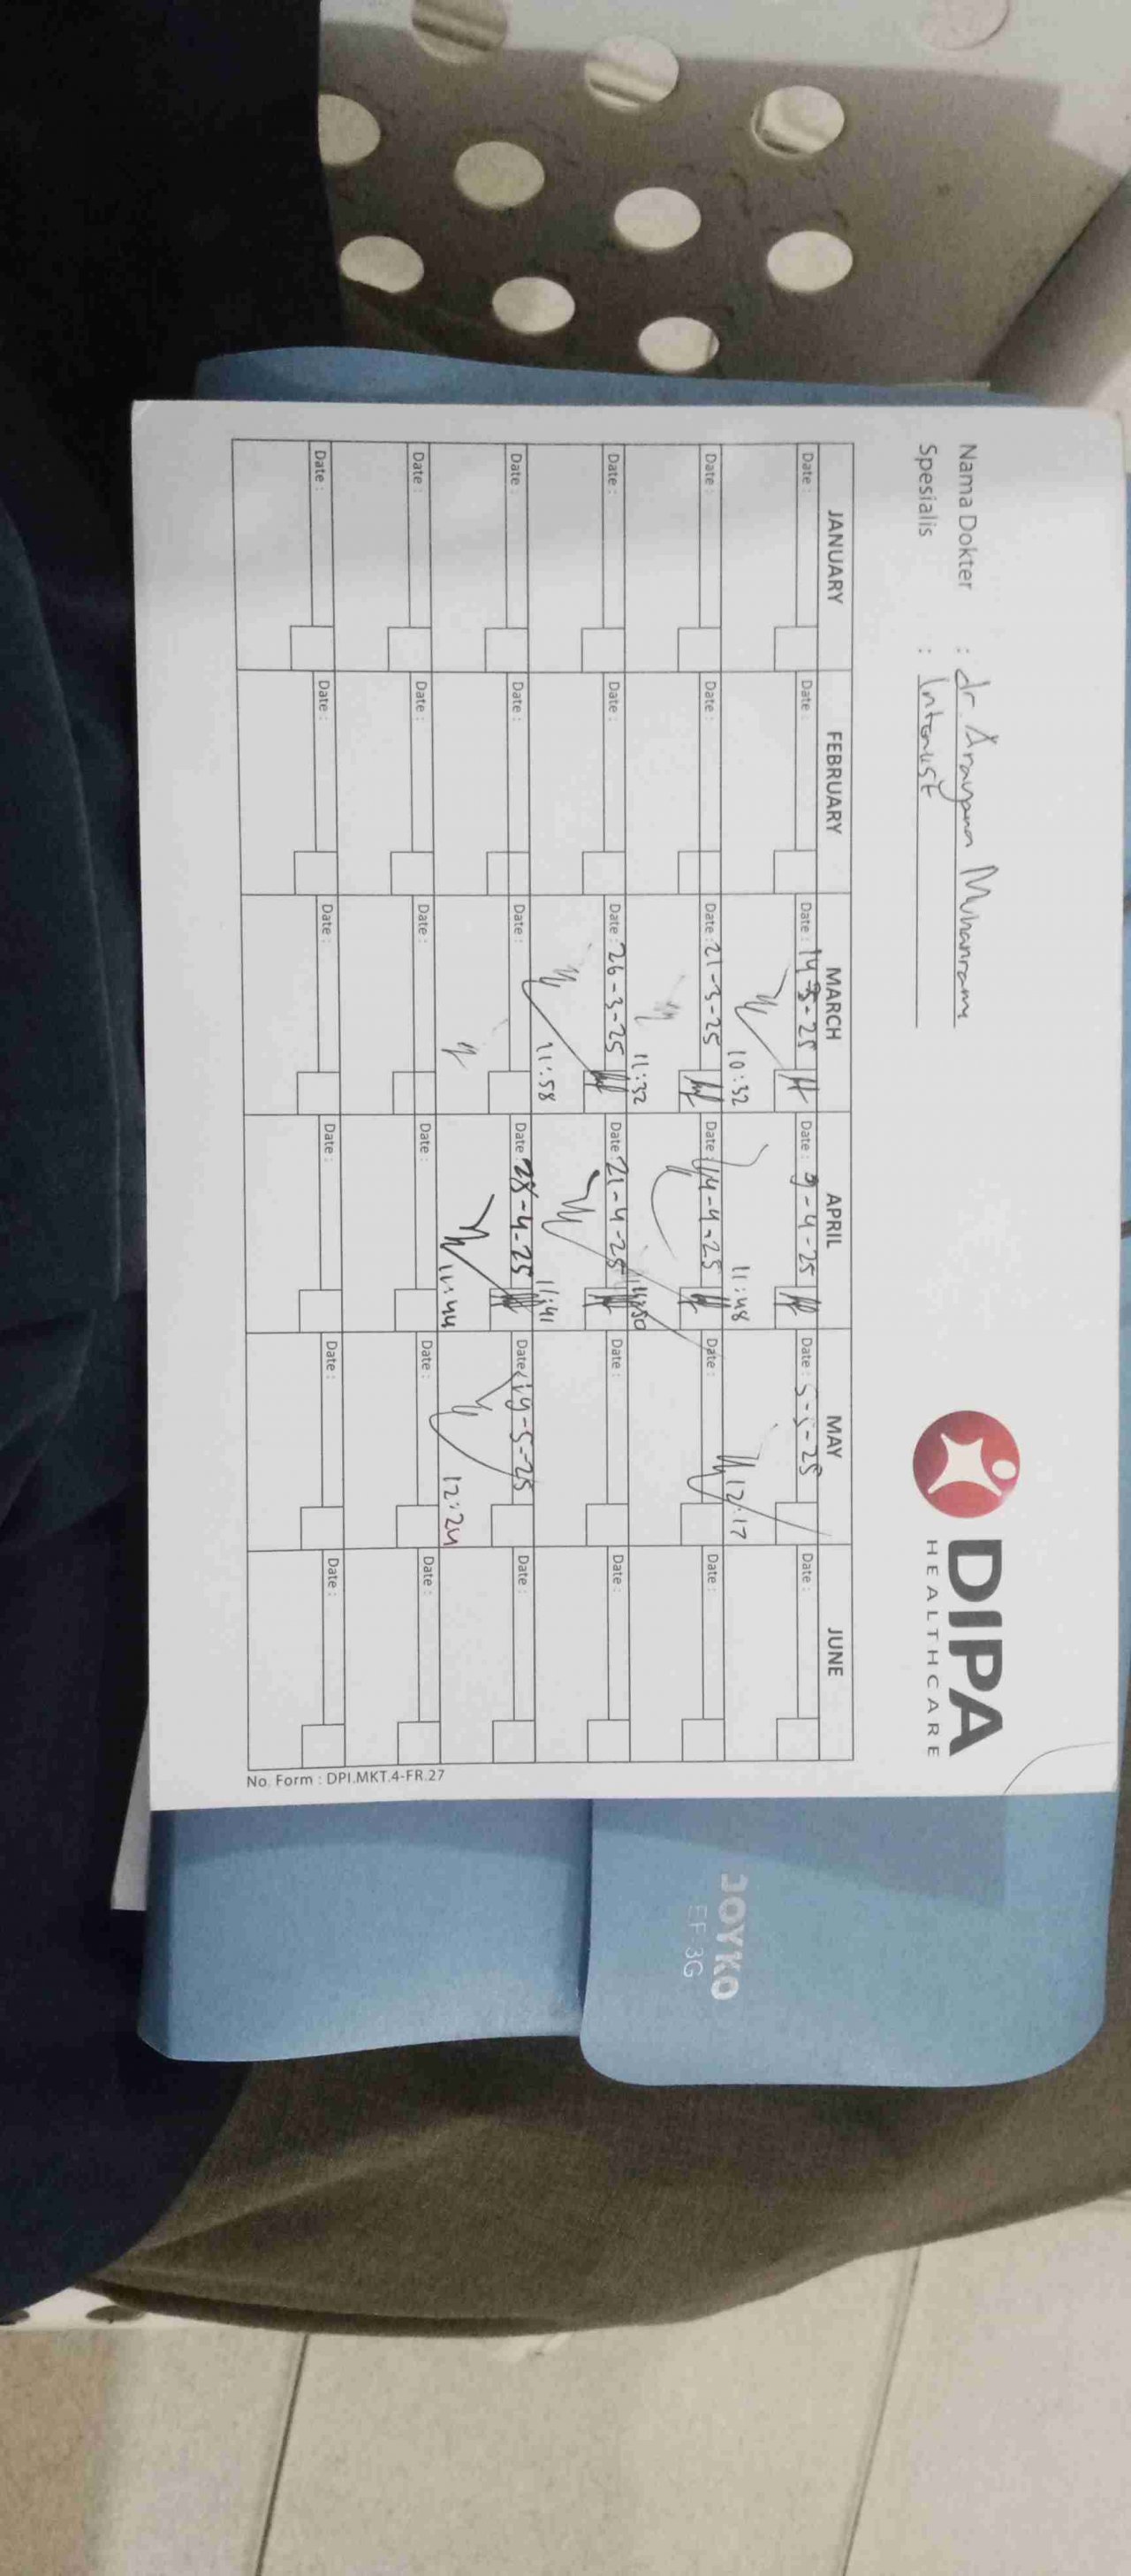 DIPA
HEALTHCARE
Nama Dokter : dr. Arayana Muhanram
Spesialis : Internist
JANUARY FEBRUARY MARCH APRIL MAY JUNE
Date : Date : Date : 14-3-25 Date : 9-4-25 Date : 5-5-25 Date :
10:32 11:48 12:17
Date : Date : Date : 21-3-25 Date : 14-4-25 Date : Date :
11:32 14:50
Date : Date : Date : 26-3-25 Date : 21-4-25 Date : Date :
11:58 11:41
Date : Date : Date : Date : 28-4-25 Date : 19-5-25 Date :
11:44 12:24
Date : Date : Date : Date : Date : Date :
Date : Date : Date : Date : Date : Date :
No. Form : DPI.MKT.4-FR.27
JOYKO
EF 3G